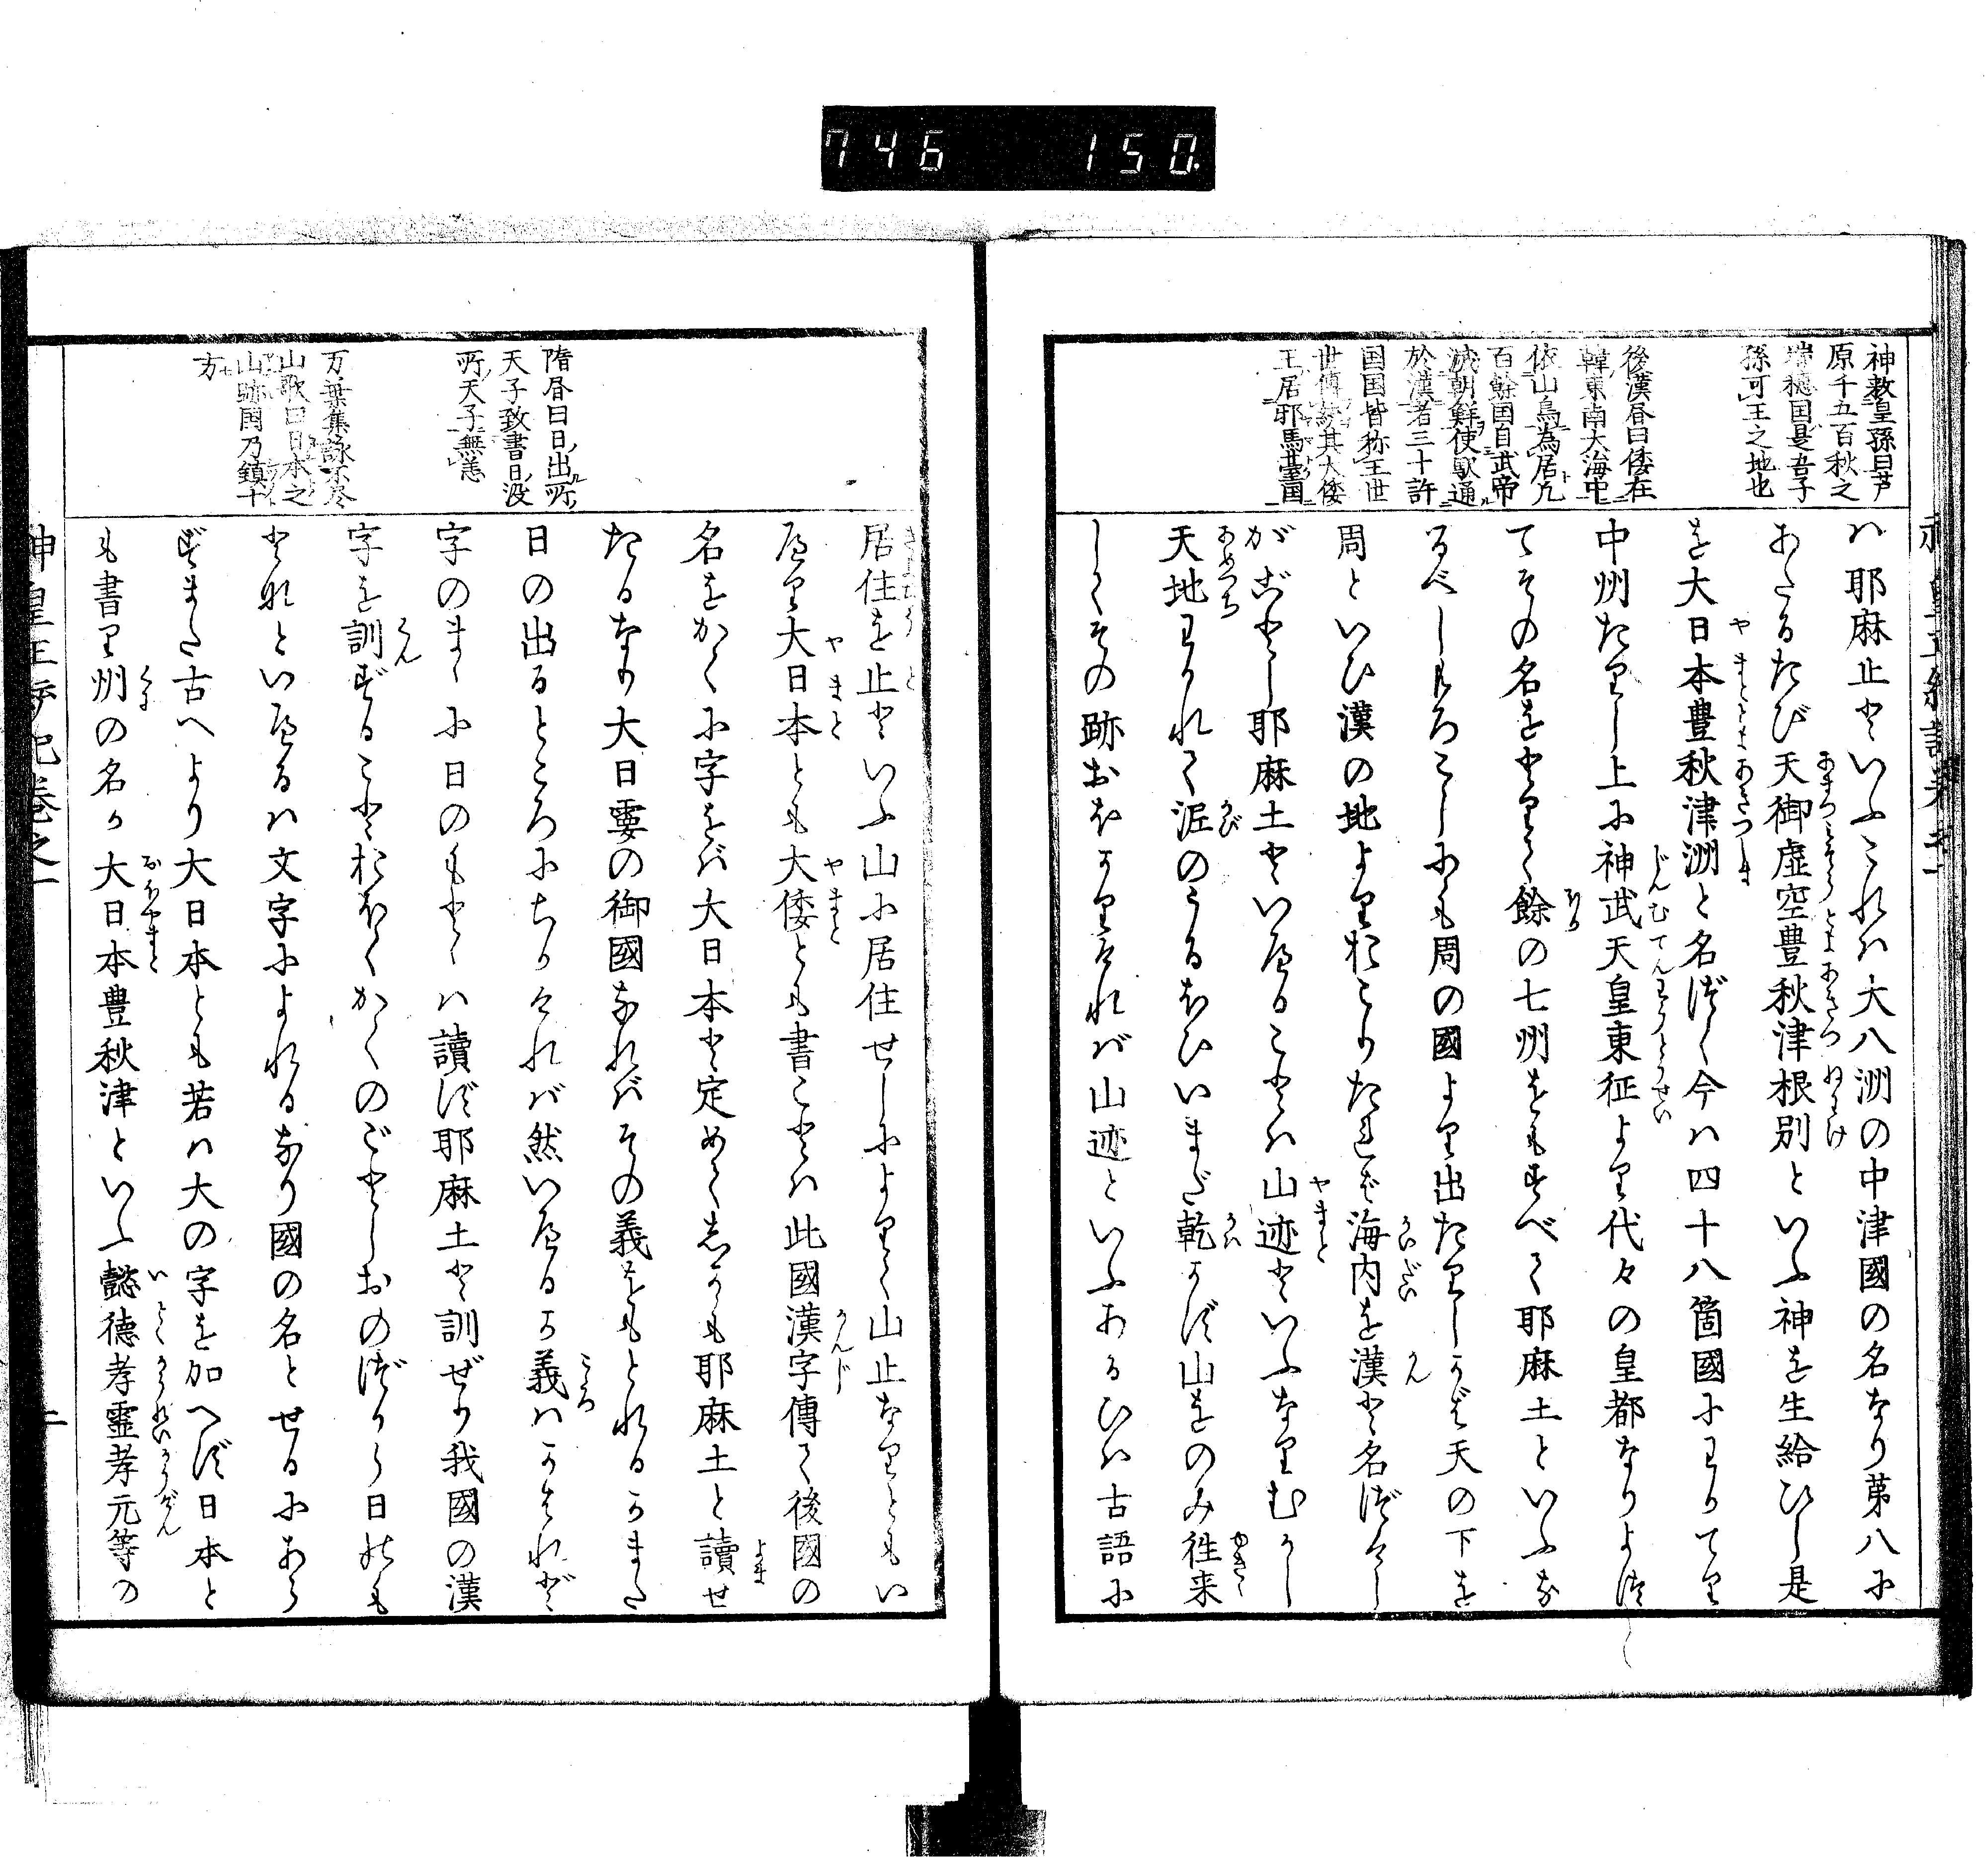 746 150.
神敕皇孫曰芦
原千五百秋之
瑞穗国是吾子
孫可王之地也
後漢昼曰倭在
韓東南大海中
依山島為居凡
百餘国自武帝
滅朝鮮使馭通
於漢者三十許
国国皆称王世
世傳統其大倭
王居邪馬臺国
ハ耶麻止といふこれハ大八洲の中津國の名なり第八に
あたるたび天御虚空豊秋津根別といふ神を生給ひし是
を大日本豊秋津洲と名づく今ハ四十八箇國にわかてり
中州たりし上に神武天皇東征より代々の皇都なりよつ
てその名をとりて餘の七州をもすべて耶麻土といふな
るべしもろこしにも周の國より出たりしかば天の下を
周といひ漢の地よりおこりたれば海内を漢と名づけし
がごとし耶麻土といへることハ山迹といふなりむかし
天地わかれて泥のうるほひいまだ乾かず山をのみ徃来
してその跡おほかりければ山迹といふあるひハ古語に
居住を止といふ山に居住せしによりて山止なりともい
へり大日本とも大倭とも書ことハ此國漢字傳て後國の
名をかくに字をバ大日本と定めてしかも耶麻土と讀せ
たるなり大日孁の御國なれバその義をもとれるかまた
日の出るところにちかけれバ然いへるか義ハかゝれど
字のまゝに日のもとゝハ讀ず耶麻土と訓ぜり我國の漢
字を訓ずることおほくかくのごとしおのづから日のも
となどいへるハ文字によれるなり國の名とせるにあら
ずまた古へより大日本とも若ハ大の字を加へず日本と
も書り州の名を大日本豊秋津といふ懿德孝霊孝元等の
隋昼曰日出所
天子致書日没
所天子無恙
万葉集詠不尽
山歌曰日本之
山跡國乃鎮十
方
神皇正統記巻之一
二